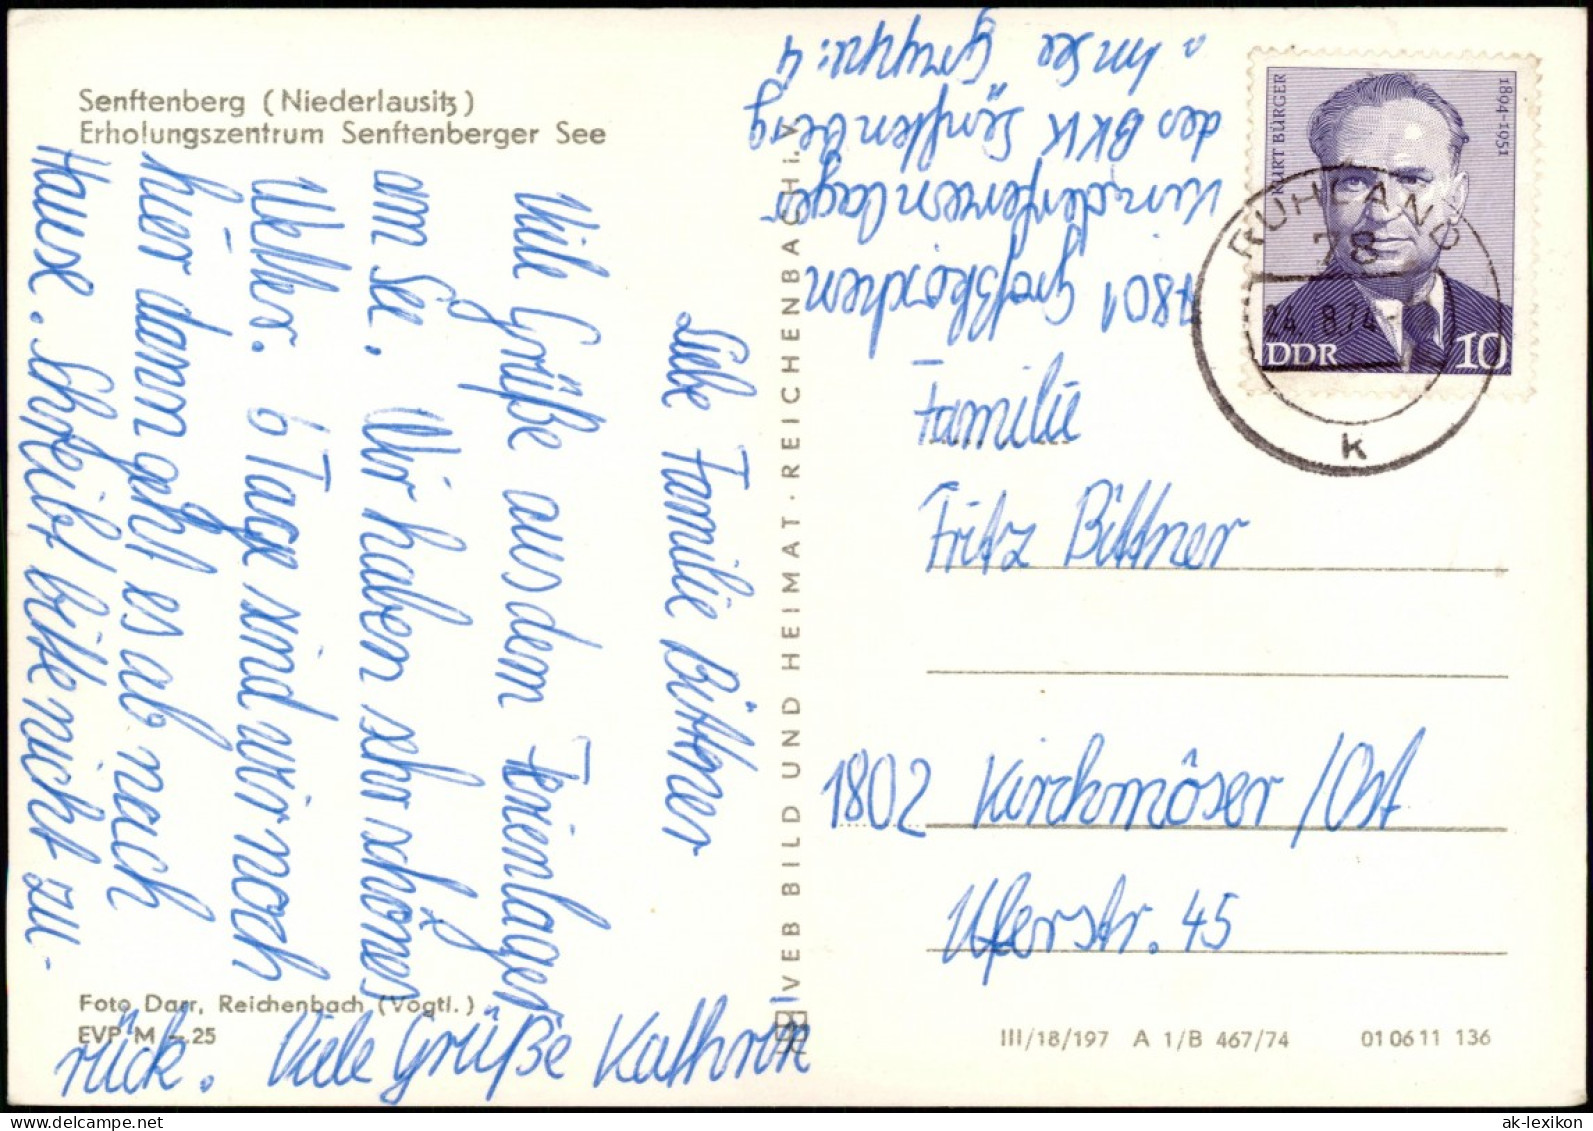 Senftenberg (Niederlausitz)
Erholungszentrum Senftenberger See
Liebe Familie Bittner
Viele Grüße aus dem Ferienlager
am See. Wir haben sehr schönes
Wetter. 6 Tage sind wir noch
hier dann geht es ab nach
Hause. Schreibt bitte nicht zu-
rück. Viele Grüße Kathrin
Foto Darr, Reichenbach (Vogtl.)
EVP M -.25
VEB BILD UND HEIMAT · REICHENBACH i. V.
7801 Großkoschen
Kinderferienlager
des BKK Senftenberg
"Am See Gruppe: 4
KURT BÜRGER
1894-1951
DDR 10
RUHLAND
78
24. 8.74-
k
Familie
Fritz Bittner
1802 Kirchmöser /Ost
Uferstr. 45
III/18/197 A 1/B 467/74 01 06 11 136
ak-lexikon.de